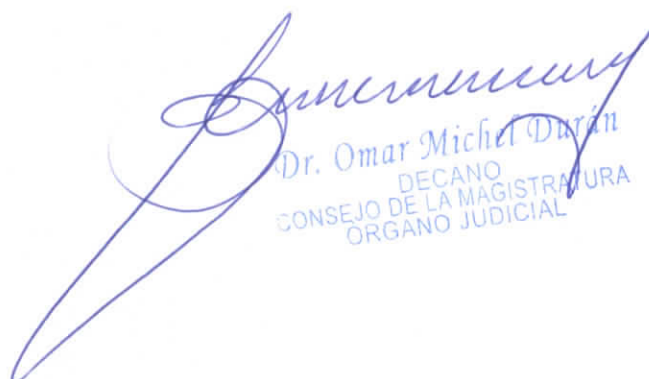 Dr. Omar Michel Durán
DECANO
CONSEJO DE LA MAGISTRATURA
ORGANO JUDICIAL